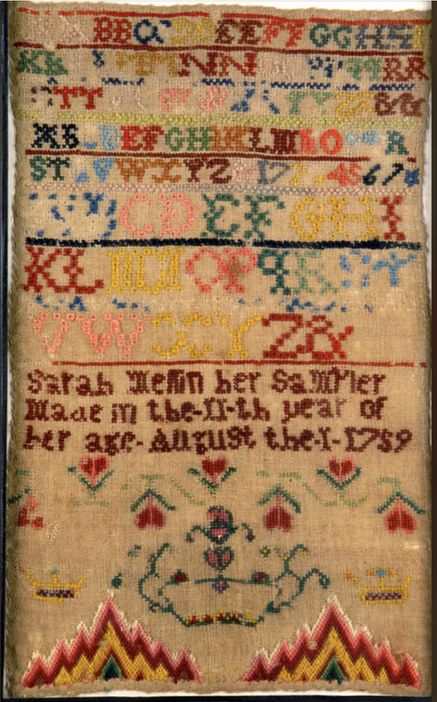 BB CC DD EE FF GG HH I
KK MM NN PP QQ RR
TT W X Y Z &
AB DEFGHIKLM O R
ST VWXYZ 4567
CDEFGHI
KLMNOPQRST
VWXYZ&
Sarah Meffin her Sampler
Made in the-11-th year of
her age- August the-1-1759